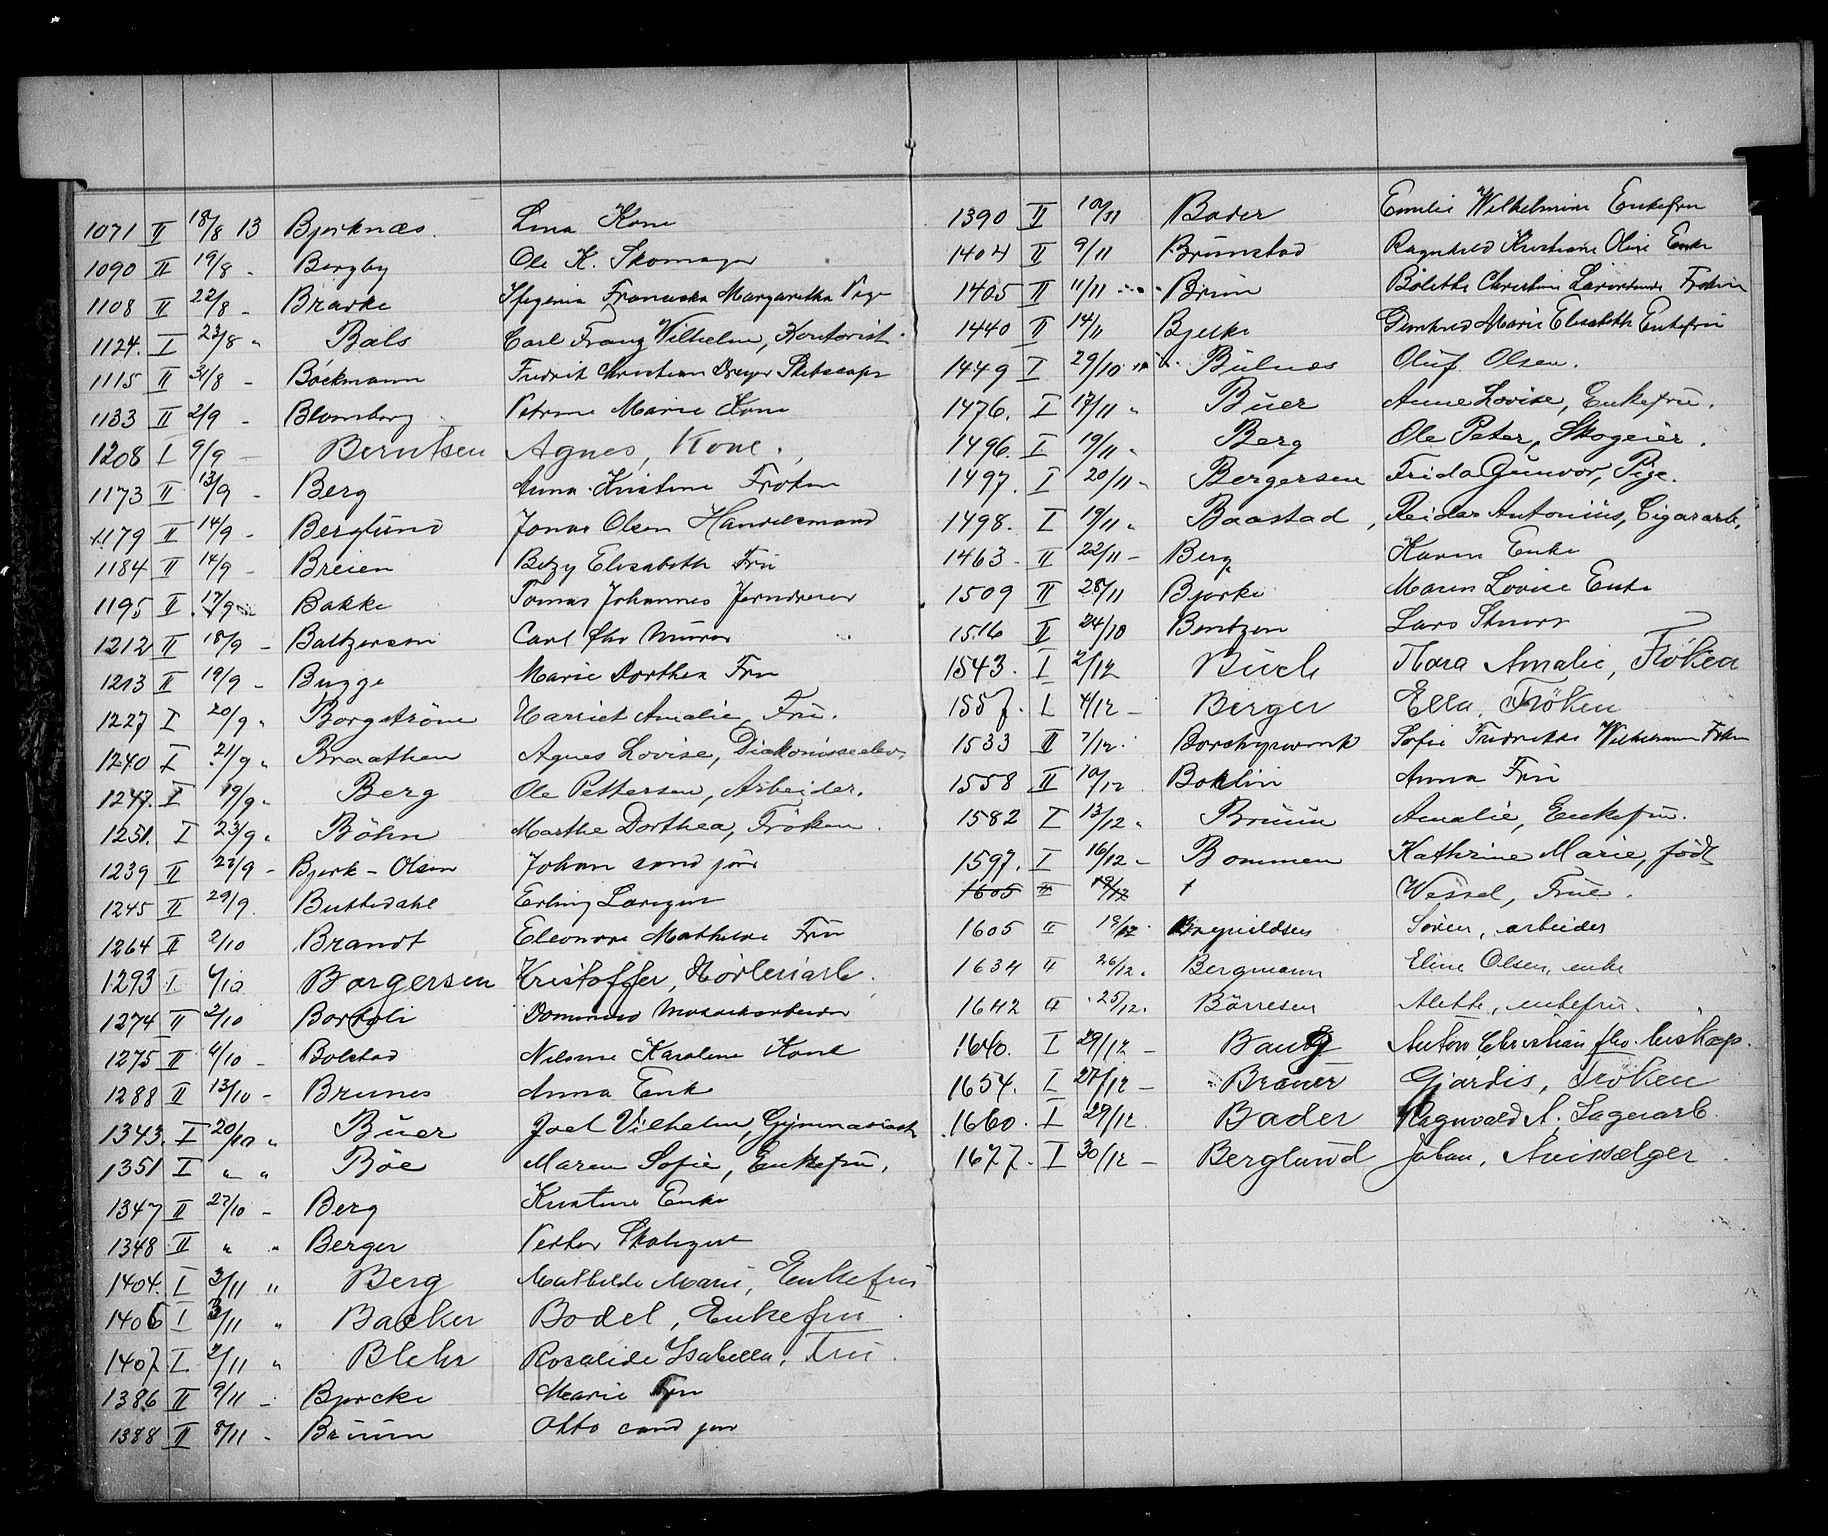 1071 II 18/8 13 Bjerknæs. Lina Kone
1090 II 19/8 - Bergby Ole K. Skomager
1108 II 22/8 - Bracke Ifigenia Franciska Margaretha Pige
1124. I 23/8 " Bals Carl Franz Vilhelm, Kontorist.
1115 II 31/8 - Böckmann Fredrik Christian Dreyer Skibscapt
1133 II 2/9 - Blomberg Petrine Marie Kone
1208 I 9/9 - Berntsen Agnes, Kone.
1173 II 13/9 - Berg Anna Kristine Frøken
1179 II 14/9 - Berglund Jonas Olsen Handelsmand
1184 II 14/9 - Breien Betzy Elisabeth Fru
1195 II 17/9 Bakke Tomas Johannes Jerndreier
1212 II 18/9 - Baltzersen Carl fhv Murer
1213 II 19/9 - Bugge Marie Dorthea Fru
1227 I 20/9 " Borgström Harriet Amalie, Fru.
1240 I 21/9 " Braathen Agnes Lovise, Diakonisseelev.
1247. I 19/9 " Berg Ole Pettersen, Arbeider.
1251. I 23/9 " Böhn Marthe Dorthea, Fröken.
1239 II 28/9 - Bjerk - Olsen Johan cand jur
1245 II 29/9. Buttedahl Erling
1264 II 2/10 Brandt Eleonore Mathilde Fru
1293 I 4/10 Borgersen Kristoffer,
1274 II 2/10 Bortoli Dominico Mosaikarbeider
1275 II 6/10 - Bolstad Nilsine Karoline Kone
1288 II 13/10 - Brunes Anna Enk
1343. I 20/10 " Buer Joel Vilhelm, Gymnasiast
1351 I " " Böe Maren Sofie, Enkefru.
1347 II 27/10 - Berg Kristine Enke
1348 II " " Berger Skolegut
1404. I 3/11 " Berg Mathilde Marie, Enkefru
1406 I 3/11 " Backer Bodel, Enkefru.
1407 I 2/11 " Blehr Rosalide Isabella, Fru.
1386 II 9/11 - Bjercke Marie Fru
1388 II 8/11 - Bruun Otto cand jur
1390 II 10/11 Bader Emilie Wilhelmine Enkefru
1404 II 9/11 Brunstad Ragnhild Kristiane Oline Enke
1405 II 11/11 Brun Bolette Christine Frøken
1440 II 14/11 Bjelke Marie Elisabeth Enkefru
1449 I 29/10 Bulnes Oluf Olsen.
1476. I 17/11 " Buer Anne Lovise, Enkefru.
1496. I 19/11 " Berg Ole Peter, Skogeier.
1497. I 20/11 " Bergersen Frida Gunvor, Pige.
1498. I 19/11 " Baastad, Reidar Antonius, Cigararb.
1463. II 22/11 - Berg Karen Enke
1509 II 28/11 Bjerke Maren Lovise Enke
1516 II 24/10 Bentzen Lars
1543. I 2/12 Buch Thora Amalie, Fröken
1557. I 4/12 - Berger Ella, Fröken
1533 II 7/12. Sofie Fredrikke Wilhelmine Frken
1558 II 10/12 Boklin Anna Fru
1582 I 13/12 " Bruun Amalie, Enkefru.
1597. I 16/12 - Bommen Kathrine Marie, född
1605 II 19/12 Wessel, Frue.
1605 II 19/12 Brynildsen Sören, arbeider
1634 II 26/12. Bergmann Eline Olsen, enke
1642 II 25/12. Börresen Alette, enkefru.
1640. I 29/12 - Baug Anton Christian fhv.
1654. I 27/12 - Brauer Gjørdis, Fröken
1660. I 29/12. Bader Ragnvald A. Lagerarb.
1677. I 30/12 - Berglund Johan, Avissælger.